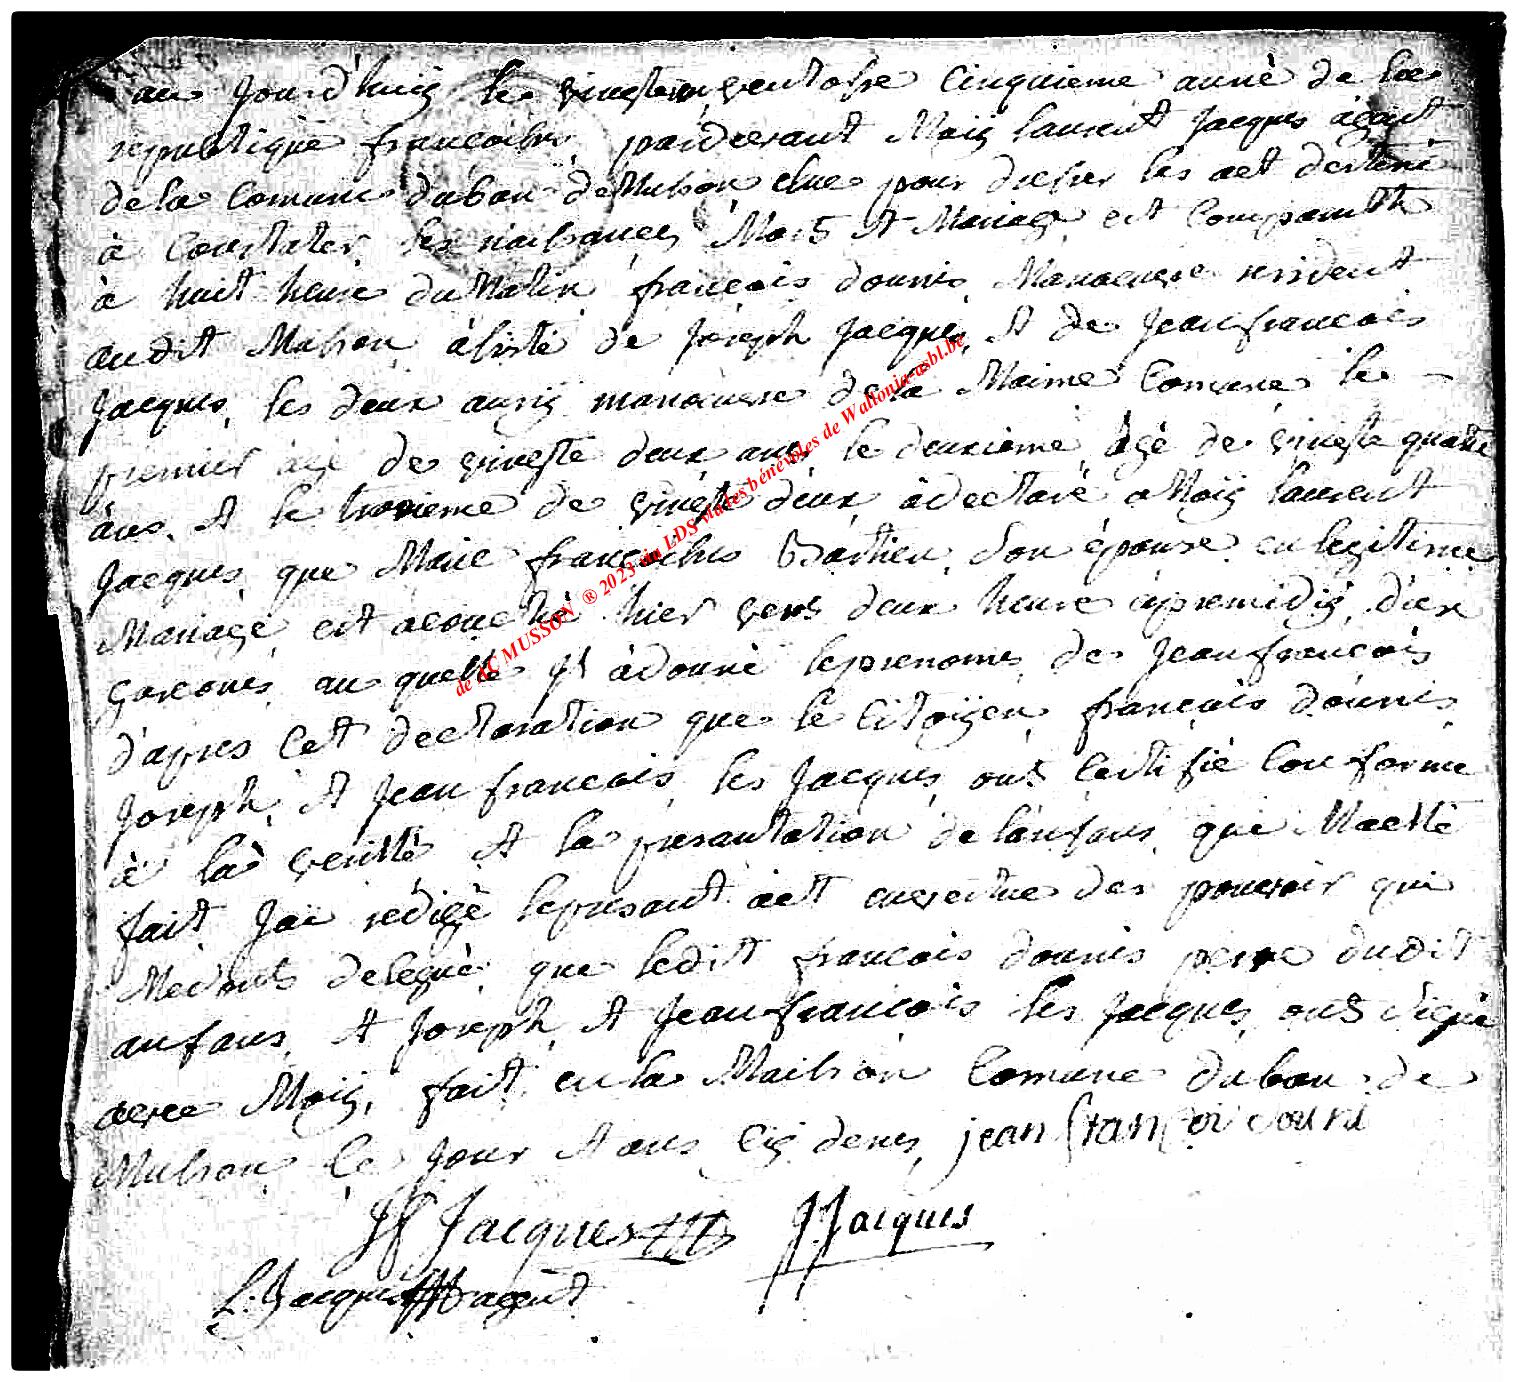 au jourd'huij le vingteun ventosse cinquieme anné de la
republique francoisse pardeevant Moij laurent Jacques agant
de la Comune du ban de Musson elue pour dresser les act destiné
à Constater les naissances Mors et Mariage est Comparutte
à huit heure du Matin francois dounis Manoeuvre resident
audit Musson assisté de Joseph Jacques et de Jean francois
Jacques les deux aussij manoeuvre de la Maime Comune le
premier agé de vingte deux ans le deuxieme agé de vingte quatre
ans et le troisieme de vingte deux à déclaré a Moij laurent
Jacques que Marie francoisse Bastien son épouse en legitime
Mariage est acouché hier vers deux heure apremidij d'ux
garcones au quelle Jl à donné le prenoms de Jean francois
d'apres cet declaration que le Citoijen francois dounis
Joseph et Jean francois les Jacques ont certifié Conforme
à la veritté et la presantation de l'anfans que Maetté
fait Jai rédigé le presant act en vertue des pouvoir qui
Me donts delegué que ledit francois dounis perre dudit
anfans et Joseph et Jean francois les Jacques ont signé
avec Moij, fait en la Maisson Comune du ban de
Musson le Jour et ans cij denes jean francoi douni
Jf Jacques J. Jacques
L. Jacques agent
de AC MUSSON ® 2023 du LDS via les bénévoles de Wallonia-asbl.be